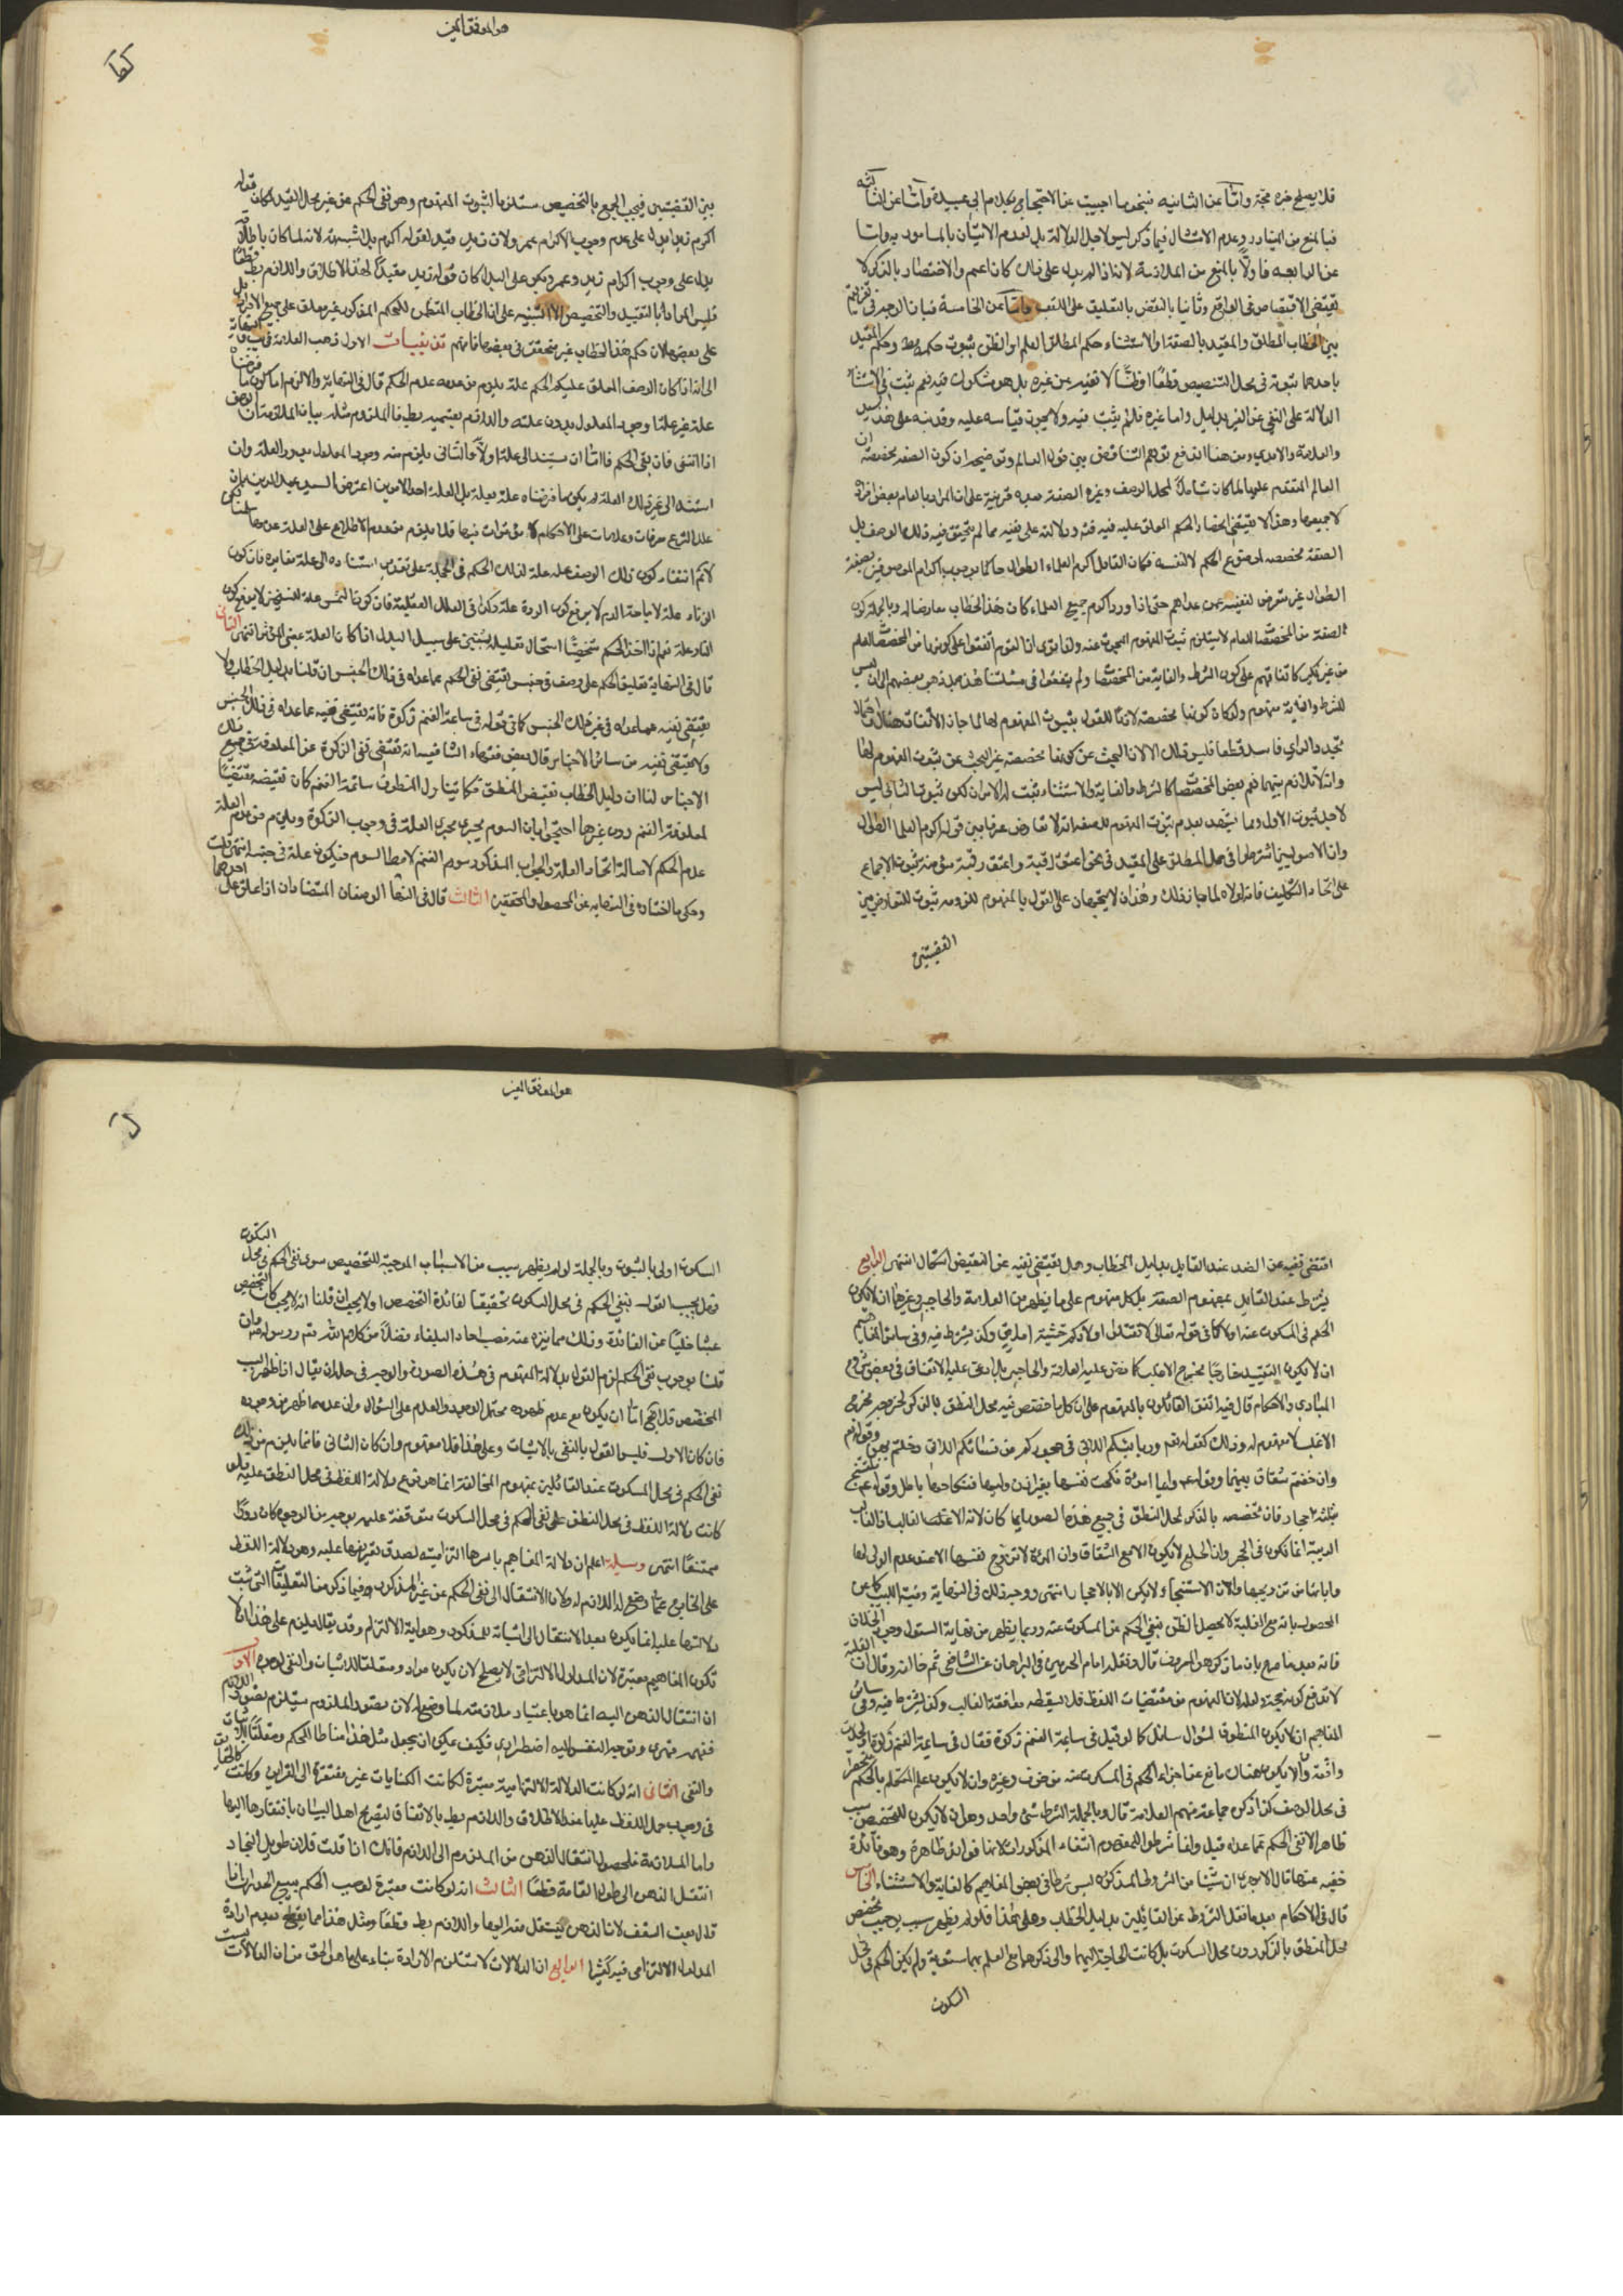 قلا يصلح غيره حجة واما عن الثانية فبنحو ما اجيب عن الاحتجاج بكلام ابي عبيدة واما عن الثالثة
فبالمنع من التبادر وعدم الامتثال فيما ذكر ليس لاجل الدلالة بل لعدم الاتيان بالمامور به واما
عن الرابعه فاولا بالمنع من الملازمة لانه اذا لم يدل على ذلك كان اعم والاختصار بالذكر لا
يقتضي الاختصاص في الواقع وثانيا بالنقض بالتعليق على اللقب واما عن الخامسة فبان الوجه في
بين الخطاب المطلق والمقيد بالصفة او الاستثناء حكم المطلق العلم او الظن بثبوت حكمه وحكم المقيد
باحدهما ثبوته في محل التنصيص قطعا او ظنا لا نفيه عن غيره بل هو مسكوت فيه نعم ثبت في الاستثناء
الدلالة على النفي عن الغير بدليل واما غيره فلم يثبت فيه ولا يجوز قياسه عليه
والعلامة والامدي ومن هنا اندفع توهم التناقض بين قول العالم وتوضيحه ان كون الصفة مخصصة
العام المتقدم عليها لما كان شاملا لمحل الوصف وغيره الصفة معه قرينة على ان المراد بالعام بعض افراده
لا جميعها وهذا لا يقتضي اختصار الحكم المعلق عليه فيه ودلالته على نفيه عما لم يتحقق فيه ذلك الوصف بل
الصفة مخصصه لموضوع الحكم لا لنفسه فكان القائل اكرم العلماء الطوال حاكما بوجوب اكرام الموصوفين بصفة
الطول غير متعرض لنفيه عمن عداهم حتى اذا ورد اكرم جميع العلماء كان هذا الخطاب معارضا له وبالجملة كون
الصفة من المخصصات للعام لا يستلزم ثبوت المفهوم المبحوث عنه ولذا ترى ان القوم اتفقوا على كونها من المخصصات للعام
من غير نكير كاتفاقهم على كون الشرط والغاية من المخصصات ولم يتفقوا في مسئلتنا هذه بل ذهب بعضهم الى ان ليس
للشرط والغاية مفهوم ولو كان كونها مخصصة لازما للقول بثبوت المفهوم لها لما جاز الاتفاق هناك
بمجرد الراي فاسد قطعا فليس ذلك الا لان البحث عن كونها مخصصة غير البحث عن ثبوت المفهوم لها
وانه لا تلازم بينهما نعم بعض المخصصات كالشرط والغاية والاستثناء ثبت له الامران لكن ثبوت الثاني ليس
لاجل ثبوت الاول ومما يشهد بعدم ثبوت المفهوم للصفة انه لا تعارض عرفا بين قوله اكرم العلماء الطوال
وان الاصوليين اشترطوا في حمل المطلق على المقيد في نحو اعتق رقبة واعتق رقبة مؤمنة ثبوت الاجماع
على اتحاد التكليف فانه لولاه لما جاز ذلك وهذان لا يتجهان على القول بالمفهوم للزومه ثبوت التعارض بين
القضيتين
هو الموفق المعين
بين القضيتين فيجب الجمع بالتخصيص مستلزما لثبوت المفهوم وهو نفي الحكم عن غير محل القيد لكان قوله
اكرم زيدا يدل على عدم وجوب الاكرام عمرو لان زيد مقيد لقوله اكرم بلا شبهة لانه لما كان باطلاقه
يدل على وجوب اكرام زيد وعمرو وبكر على البدل كان قوله زيد مقيدا لهذا الاطلاق واللازم بط قطعا
فليس المراد بالتقييد والتخصيص الا التنبيه على ان الخطاب المتضمن للحكم المذكور غير معلق على جميع الافراد بل
على بعضها لان حكم هذا الخطاب غير متحقق في بعضها فافهم تذنيبات الاول ذهب العلامة في
الى انه اذا كان الوصف المعلق عليه الحكم علة يلزم من عدمه عدم الحكم قال في النهاية والا لزم اما كون ما فرضناه
علة غير علة او وجود المعلول بدون علته واللازم بقسميه بط فالملزوم مثله بيان الملازمة ان الوصف
اذا انتفى فان بقي الحكم فاما ان يستند الى علة اولا والثاني يلزم منه وجود المعلول بدون العلة وان
استند الى غير تلك العلة لم يكن ما فرضناه علة بعلة بل العلة احد الامرين اعترض السيد عميد الدين بان
علل الشرع معرفات وعلامات على الاحكام لا مؤثرات فيها فلا يلزم من عدم الاطلاع على العلة عدمها
لا ثم انتفاء كون ذلك الوصف علة لذلك الحكم في الجملة على تقدير استناده الى علة مغايرة فان كون
الزناء علة لاباحة الدم لا يرفع كون الردة علة وكذا في العلل العقلية فان كون الشمس علة للتسخين لا يرفع كون
النار علة نعم اذا اتخذ الحكم شخصيا استحال تعليله بشيئين على سبيل البدل اذا كانا العلة بمعنى المؤثر انتهى الثاني
قال في النهاية تعليق الحكم على وصف في جنس يقتضي نفي الحكم عما عداه في ذلك الجنس ان قلنا بدليل الخطاب ولا
يقتضي نفيه عما عداه في غير ذلك الجنس كما في قوله في سائمة الغنم زكوة فانه يقتضي نفيه عما عداه في ذلك الجنس
ولا يقتضي نفيه من سائر الاجناس قال بعض فقهاء الشافعية انه يقتضي نفي الزكوة عن المعلوفة في جميع
الاجناس لنا ان دليل الخطاب نقيض المنطوق فكما يتناول المنطوق سائمة الغنم كان نقيضه مقتضيا
لمعلوفة الغنم دون غيرها احتجوا بان السوم يجري مجرى العلة في وجوب الزكوة ويلزم من عدم العلة
عدم الحكم لاصالة اتحاد العلة والجواب المذكور سوم الغنم لا مطلق السوم فيكون علة في جنسه انتهى
وحكي ما اختاره في النهاية عن المحصول والمحققين الثالث قال في النهاية الوصفان المتضادان اذا علق على احدهما
اقتضى نفيه عن الضد عند القائل بدليل الخطاب وهل يقتضي نفيه عن النقيض اشكال انتهى الرابع
يشترط عند القائل بمفهوم الصفة بل كل مفهوم على ما يظهر من العلامة والحاجبي وغيرهما ان لا يكون
الحكم في المسكوت عنه اولى كما في قوله تعالى لا تقتلوا اولادكم خشية املاق ولكن يشترط فيه وفي سائر المفاهيم
ان لا يكون التقييد خارجا مخرج الاغلب كما نص عليه العلامة والحاجبي بل ادعى عليه الاتفاق في بعض شروح
المبادي والاحكام قال فيه اتفق القائلون بالمفهوم على ان كل ما خصص فيه محل النطق بالذكر لخروجه مخرج
الاغلب لا مفهوم له وذلك كقوله تعم وربائبكم اللاتي في حجوركم من نسائكم اللاتي دخلتم بهن وقوله تعم
وان خفتم شقاق بينهما وقوله ص ايما امراة نكحت نفسها بغير اذن وليها فنكاحها باطل وقوله ص
بثلثة احجار فان تخصيصه بالذكر لمحل النطق في جميع هذه الصور انما كان لانه الاغلب اذ الغالب
الربيبة انما تكون في الحجر وان الخلع لا يكون الا مع الشقاق وان المرئة لا تزوج نفسها الا عند عدم الولي لها
واباءه من تزويجها وان الاستنجاء لا يكون الا بالاحجار انتهى ووجه ذلك في النهاية ومنية اللبيب كما عن
المحصول بانه مع الغلبة لا يحصل الظن بنفي الحكم عن المسكوت عنه وربما يظهر من نهاية السئول وجود الخلاف
فانه بعد ما صرح بان ما ذكر هو المعروف قال ونقله امام الحرمين في البرهان عن الشافعي ثم خالفه وقال ان الغلبة
لا تدفع كونه حجة ولعله لان المفهوم من مقتضيات اللفظ فلا يسقطه موافقة الغالب وكذا يشترط فيه وفي سائر
المفاهيم ان لا يكون المنطوق لسؤال سائل كما لو قيل في سائمة الغنم زكوة فقال في سائمة الغنم زكوة ولحدوث
واقعة وان لا يكون هناك مانع عن اجراء الحكم في المسكوت عنه من خوف وغيره وان لا يكون علم المتكلم بالحكم
في محل الوصف كذا ذكره جماعة منهم العلامة قال وبالجملة الشرط شئ واحد وهو ان لا يكون للتخصيص سبب
ظاهر الا نفي الحكم عما عداه قيل وانما شرطوا للمفهوم انتفاء المذكورات لانها فوائد ظاهرة وهو فائدة
خفيه عنها قال الابهري ان شيئا من الشروط المذكورة ليس شرطا في بعض المفاهيم كالغاية والاستثناء الخامس
قال في الاحكام بعد ما نقل الشروط عن القائلين بدليل الخطاب وعلى هذا فلو لم يظهر سبب يوجب تخصيص
محل النطق بالذكر دون محل السكوت بل كانت الحاجة اليهما والى ذكرهما مع العلم بهما مستوية ولم يكن الحكم في محل
السكوت
هو الموفق المعين
السكوت اولى بالثبوت وبالجملة لو لم يظهر سبب من الاسباب الموجبة للتخصيص سوى نفي الحكم في محل السكوت
فهل يجب القول بنفي الحكم في محل السكوت تحقيقا لفائدة التخصيص اولا يجب ان قلنا انه لا يجب كان التخصيص
عبثا خليا عن الفائدة وذلك مما ينزه عنه منصب احاد البلغاء فضلا من كلام الله تعم ورسوله ص وان
قلنا بوجوب نفي الحكم لزم القول بدلالة المفهوم في هذه الصورة والوجه في حله ان يقال اذا ظهر السبب
المخصص فلا يخ اما ان يكون مع عدم ظهوره محتمل الوجود والعدم على السواء او ان عدمه اظهر من وجوده
فان كان الاول فليس القول بالنفي اولى بالاثبات وعلى هذا فلا مفهوم وان كان الثاني فانما يلزم من ذلك
نفي الحكم في محل المسكوت عند القائلين بمفهوم المخالفة انما هو فرع دلالة اللفظ في محل النطق عليه فلو
كانت دلالة اللفظ في محل النطق على نفي الحكم في محل السكوت متوقفة عليه بوجه من الوجوه كان دورا
ممتنعا انتهى وسيلة اعلم ان دلالة المفاهيم باسرها التزامية لصدق تعريفها عليه وهو دلالة اللفظ
على الخارج عما وضع له اللازم له ولان الانتقال الى نفي الحكم عن غير المذكور فيما ذكر من التعليقات التي ثبت
دلالتها عليه انما يكون بعد الانتقال الى اثباته للمذكور وهو اية الالتزام وقد يقال يلزم على هذا ان لا
تكون المفاهيم معتبرة لان المدلول الالتزامي لا يصلح لان يكون مراد ومتعلقا للاثبات والنفي لوجوه الاول
ان انتقال الذهن اليه انما هو باعتبار ملازمته لما وضع له لان تصور الملزوم يستلزم تصور اللازم
فهو قهري وتوجه النفس اليه اضطراري فكيف يمكن ان يجعل مثل هذا مناطا للحكم ومتعلقا للاثبات
والنفي الثاني انه لو كانت الدلالة الالتزامية معتبرة لكانت الكنايات غير مفتقرة الى القرائن وكانت كالحقايق
في وجوب حمل اللفظ عليها عند الاطلاق واللازم بط بالاتفاق لتصريح اهل البيان بافتقارها اليها
واما الملازمة فلحصول انتقال الذهن من الملزوم الى اللازم فانك اذا قلت فلان طويل النجاد
انتقل الذهن الى طول القامة قطعا الثالث انه لو كانت معتبرة لوجب الحكم ببيع الجدار اذا
قال بعت السقف لان الذهن ينتقل منه اليها واللازم بط قطعا ومثل هذا مما يقطع بعدم ارادة
المدلول الالتزامي فيه كثير الرابع ان الدلالات لا تستلزم الارادة بناء على ما هو الحق من ان الدلالات ليست